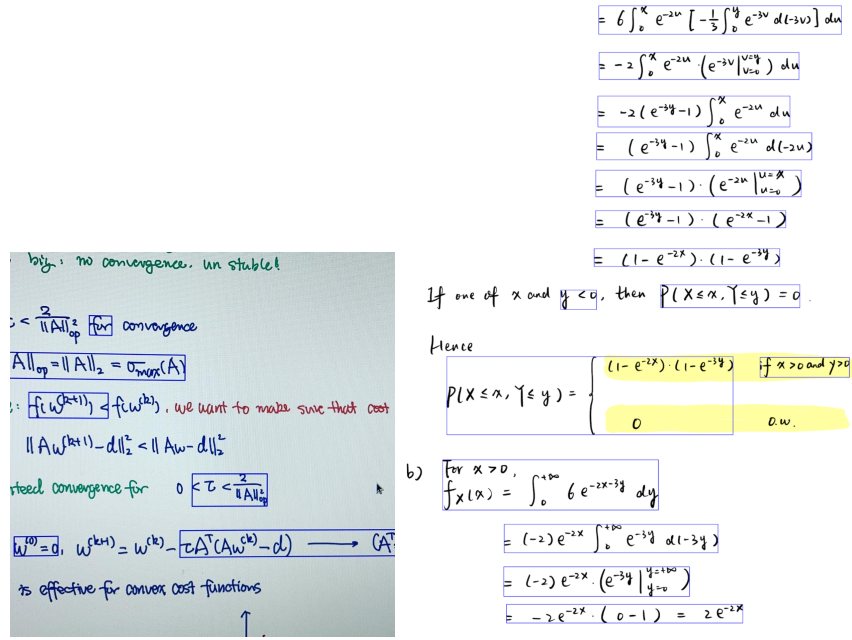 big: no convergence. un stable!
< 2/||A||²_op for convergence
A||_op = ||A||_2 = σ_max(A)
: f(w^(k+1)) < f(w^(k)), we want to make sure that cost
||Aw^(k+1) - d||²_2 < ||Aw - d||²_2
teed convergence for 0 < τ < 2/||A||²_op
w^(0) = 0, w^(k+1) = w^(k) - τA^T(Aw^(k) - d) ⟶ (A^T
is effective for convex cost functions
= 6∫_0^x e^(-2u) [-1/3 ∫_0^y e^(-3v) d(-3v)] du
= -2∫_0^x e^(-2u) · (e^(-3v)|_(v=0)^(v=y)) du
= -2(e^(-3y) - 1) ∫_0^x e^(-2u) du
= (e^(-3y) - 1) ∫_0^x e^(-2u) d(-2u)
= (e^(-3y) - 1) · (e^(-2u)|_(u=0)^(u=x))
= (e^(-3y) - 1) · (e^(-2x) - 1)
= (1 - e^(-2x)) · (1 - e^(-3y))
If one of x and y < 0, then P(X ≤ x, Y ≤ y) = 0.
Hence
P(X ≤ x, Y ≤ y) = { (1 - e^(-2x)) · (1 - e^(-3y)) if x > 0 and y > 0
0 o.w.
b) For x > 0,
f_X(x) = ∫_0^(+∞) 6e^(-2x-3y) dy
= (-2)e^(-2x) ∫_0^(+∞) e^(-3y) d(-3y)
= (-2)e^(-2x) · (e^(-3y)|_(y=0)^(y=+∞))
= -2e^(-2x) · (0 - 1) = 2e^(-2x)